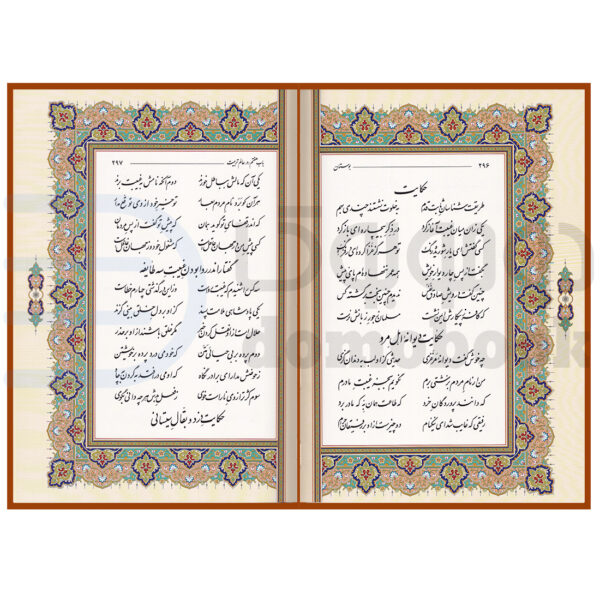 ۲۹۶ بوستان
حکایت
طریقت شناسان ثابت قدم به خلوت نشستند چندی بهم
یکی زان میان غیبت آغاز کرد در ذکر بیچاره‌ای باز کرد
کسی گفتش ای یار شوریده رنگ تو هرگز غزا کرده‌ای در فرنگ
بگفت از پس چار دیوار خویش همه عمر ننهاده‌ام پای پیش
چنین گفت درویش صادق نفس ندیدم چنین بخت برگشته کس
که کافر ز پیکارش ایمن نشست مسلمان ز جور زبانش نرست
حکایت دیوانه اهل مرو
چه خوش گفت دیوانه مرغزی حدیثی کز او لب به دندان گزی
من ار نام مردم بزشتی برم نگویم بجز غیبت مادرم
که دانند پروردگان خرد که طاعت همان به که مادر برد
رفیقی که غایب شد ای نیکنام دو چیزست از او بر رفیقان حرام
باب هفتم در عالم تربیت ۲۹۷
یکی آن که مالش به باطل خورند دوم آنکه نامش به غیبت برند
هر آن کو برد نام مردم به عار تو خیر خود از وی توقع مدار
که اندر قفای تو گوید همان که پیش تو گفت از پس مردمان
کسی پیش من در جهان عاقلست که مشغول خود وز جهان غافلست
گفتار اندر روا بودن غیبت سه طایفه
سه کس را شنیدم که غیبت رواست وزین درگذشتی چهارم خطاست
یکی پادشاهی ملامت پسند کز او بر دل خلق بینی گزند
حلال است از او نقل کردن خبر مگر خلق باشند از او بر حذر
دوم پرده بر بی حیائی متن که خود می درد پرده بر خویشتن
ز حوضش مدار ای برادر نگاه که او می درافتد به گردن بچاه
سوم کژ ترازوی ناراست خوی ز فعل بدش هرچه دانی بگوی
حکایت دزد و بقال سیستانی
domobook